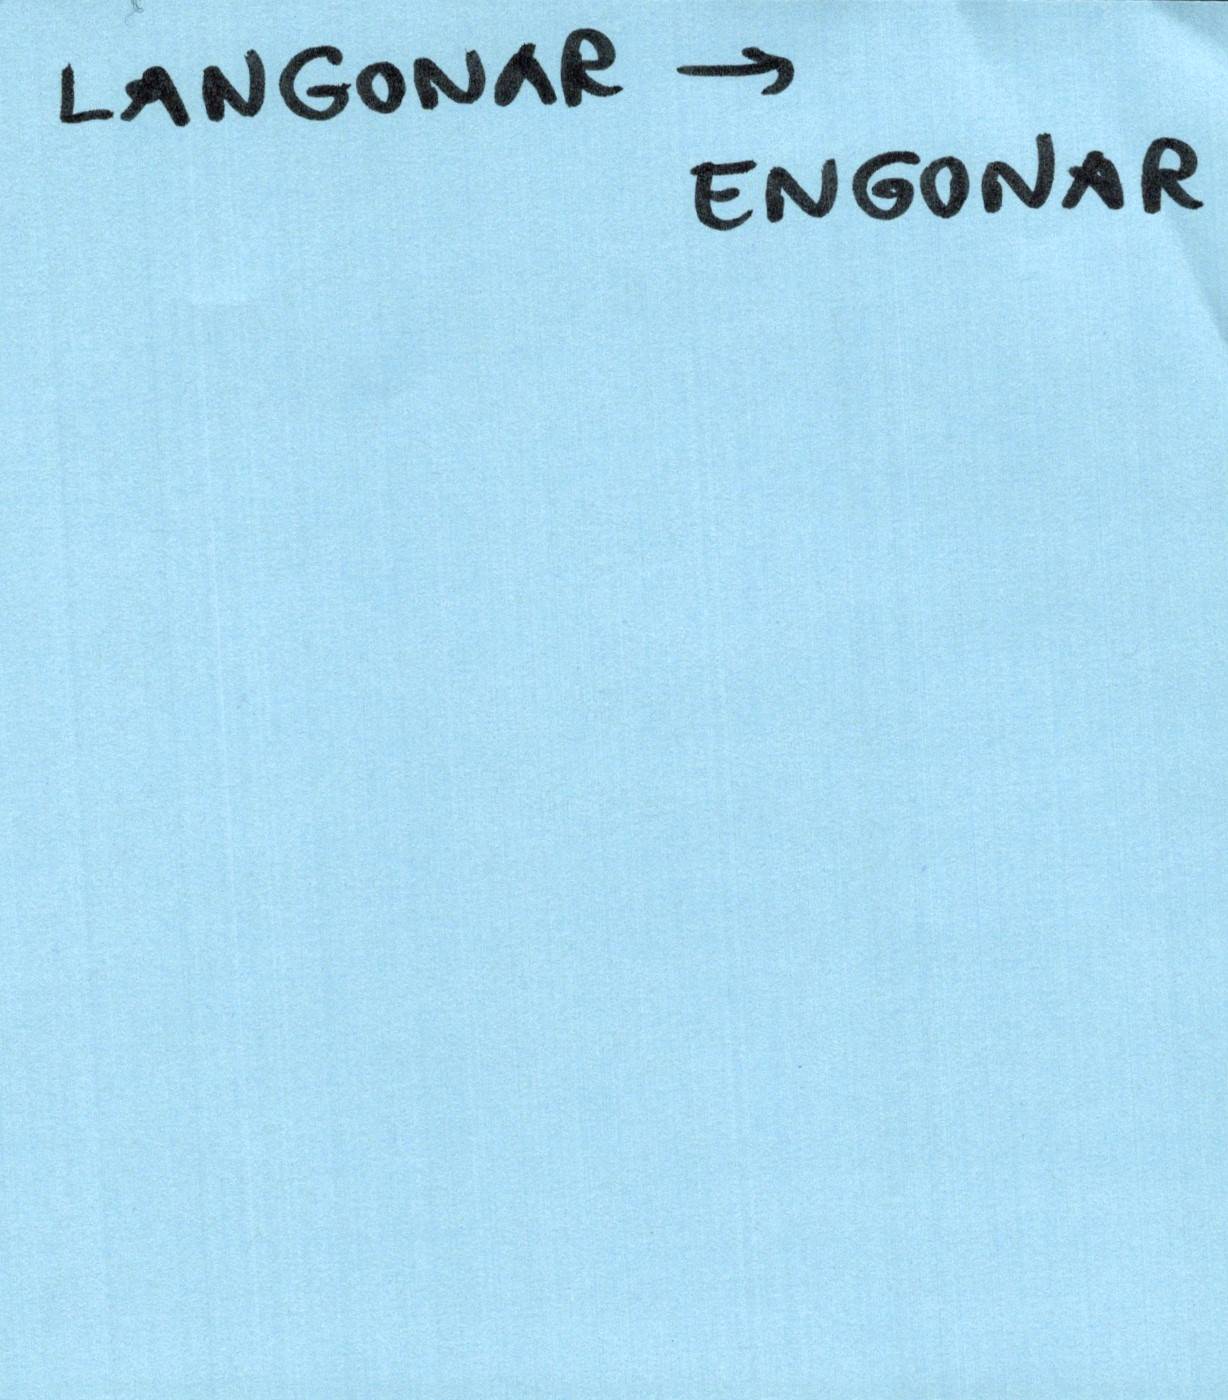 LANGONAR →
ENGONAR